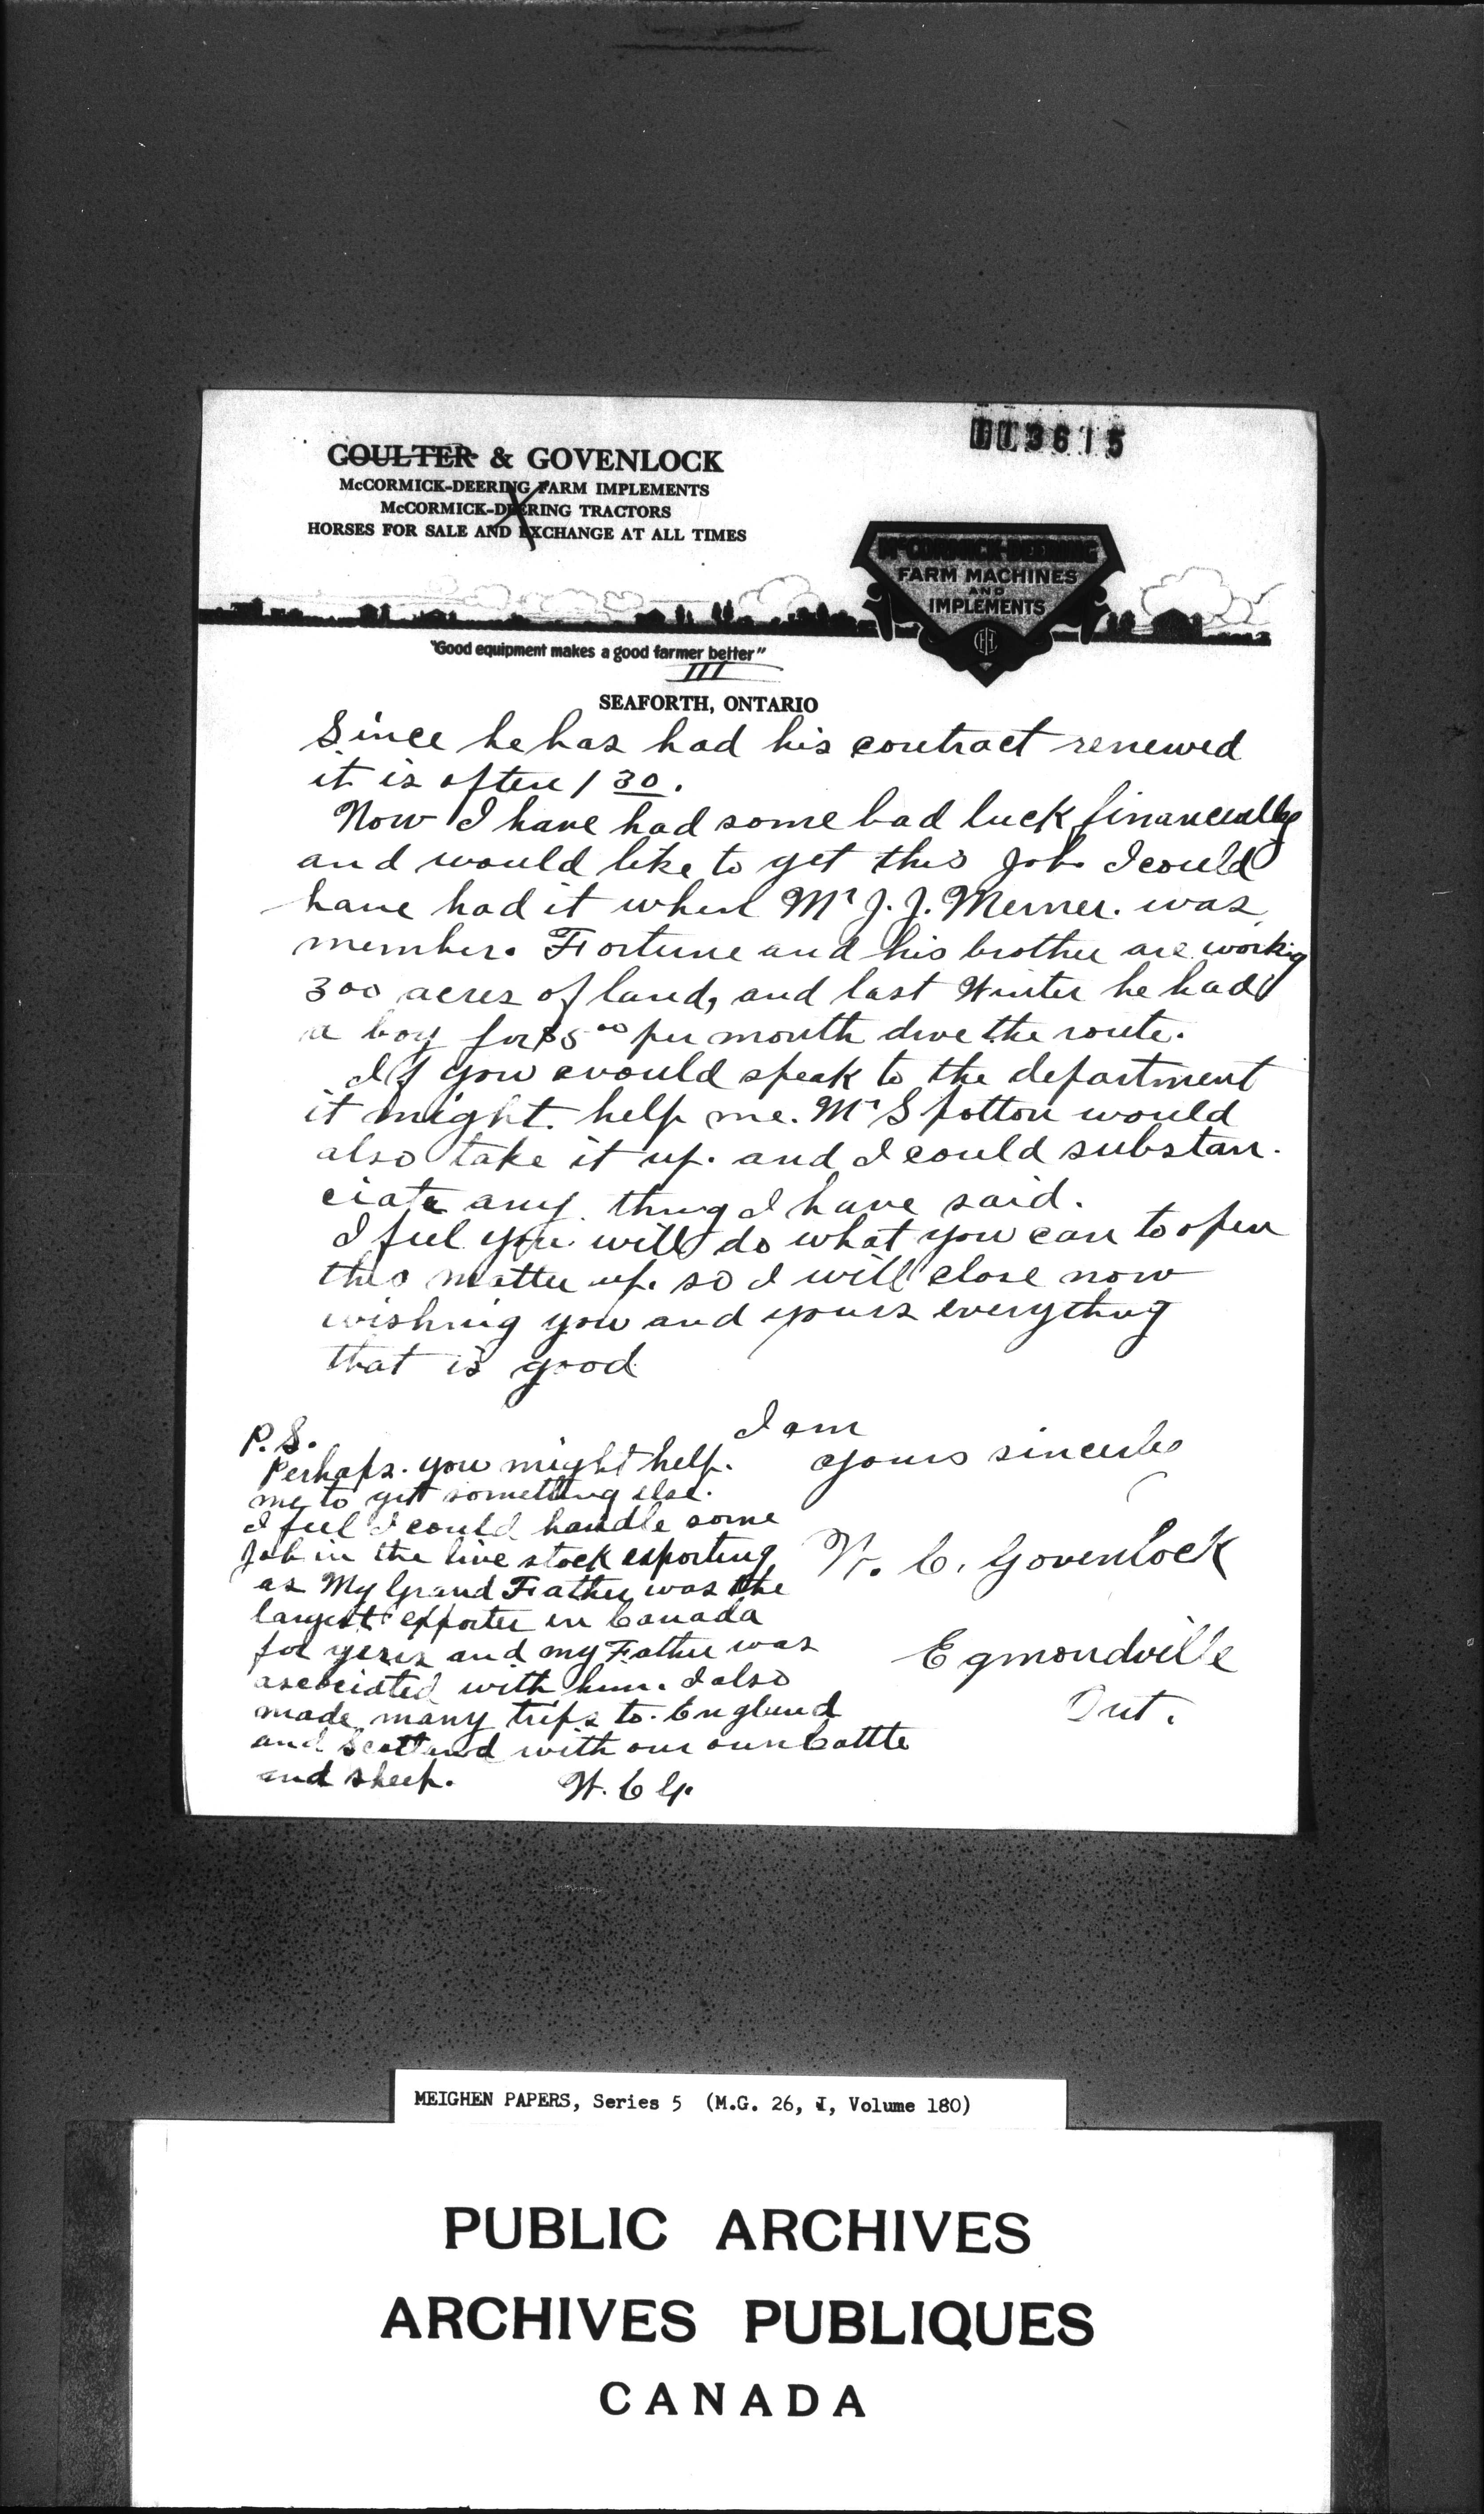 COULTER & GOVENLOCK
McCORMICK-DEERING FARM IMPLEMENTS
McCORMICK-DEERING TRACTORS
HORSES FOR SALE AND EXCHANGE AT ALL TIMES
McCORMICK-DEERING
FARM MACHINES
AND
IMPLEMENTS
"Good equipment makes a good farmer better"
III
SEAFORTH, ONTARIO
Since he has had his contract renewed
it is often 1 30.
Now I have had some bad luck financially
and would like to get this job I could
have had it when Mr J. J. Merner. was
member. Fortune and his brother are working
300 acres of land, and last Winter he had
a boy for $5 00 per month drive the route.
If you would speak to the department
it might help me. Mr Spotton would
also take it up. and I could substan.
ciate any thing I have said.
I feel you will do what you can to open
this matter up. so I will close now
wishing you and yours everything
that is good
I am
yours sincerely
W. C. Govenlock
Egmondville
Ont.
P.S.
Perhaps. you might help.
me to get something else.
I feel I could handle some
Job in the live stock exporting
as My Grand Father was the
largest exporter in Canada
for years and my Father was
asebciated with him. I also
made many trips to England
and Scotland with our own Cattle
and sheep. W. C G.
MEIGHEN PAPERS, Series 5 (M.G. 26, I, Volume 180)
PUBLIC ARCHIVES
ARCHIVES PUBLIQUES
CANADA